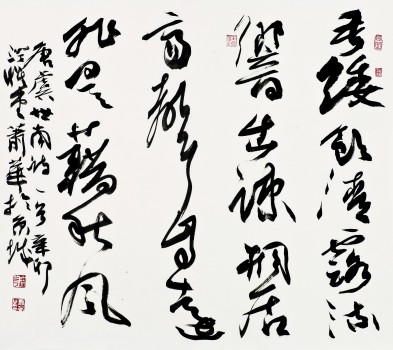 垂緌飲清露流
響出疎桐居
高聲自遠
非是藉秋風
唐虞世南詩一首辛卯
蕭華於京城